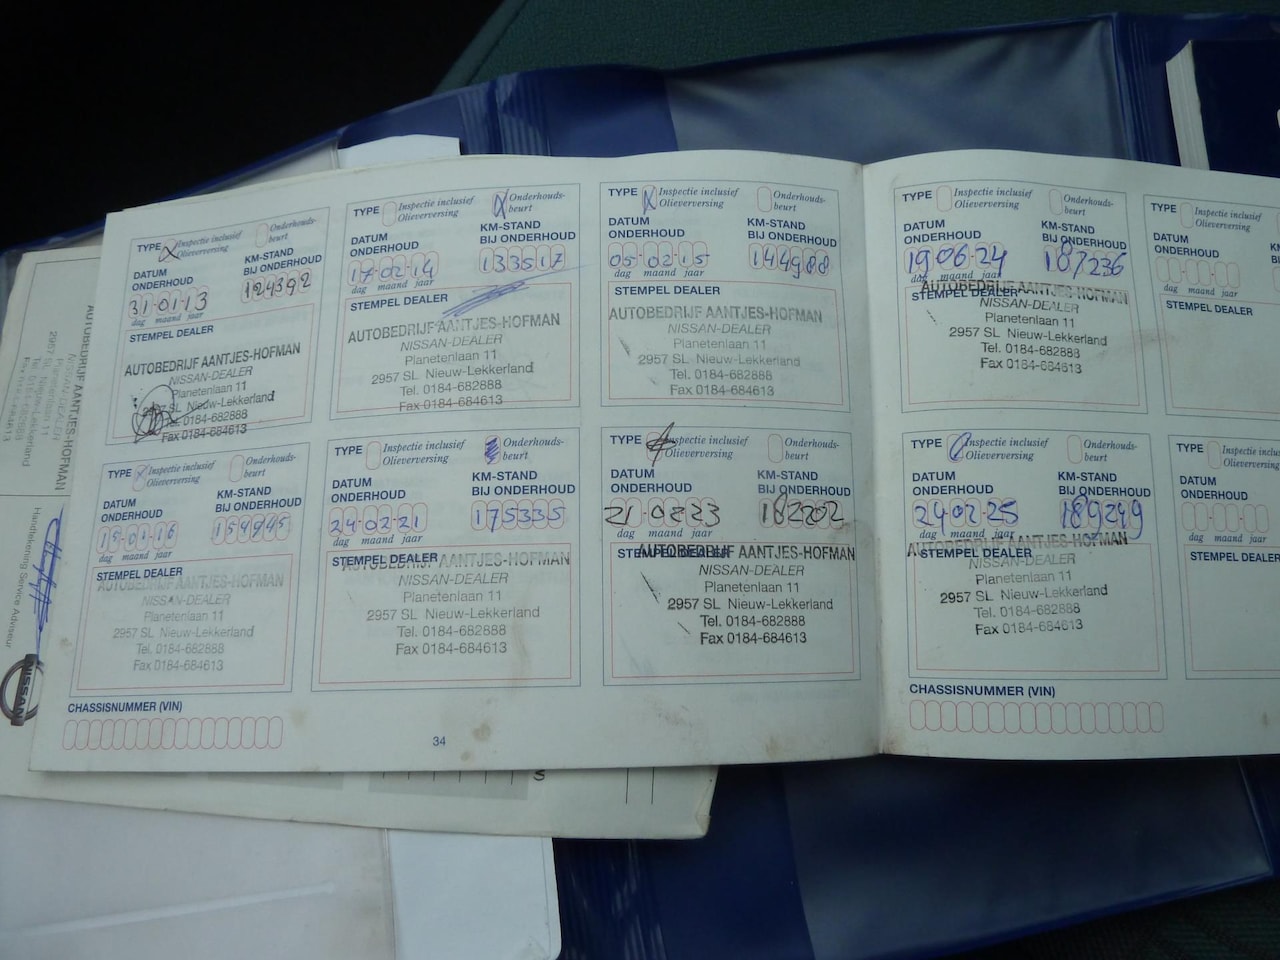 TYPE Inspectie inclusief Olieverversing Onderhouds-beurt
DATUM ONDERHOUD
KM-STAND BIJ ONDERHOUD
31-01-13 124392
dag maand jaar
STEMPEL DEALER
AUTOBEDRIJF AANTJES-HOFMAN
NISSAN-DEALER
Planetenlaan 11
2957 SL Nieuw-Lekkerland
Tel. 0184-682888
Fax 0184-684613
TYPE Inspectie inclusief Olieverversing Onderhouds-beurt
DATUM ONDERHOUD
KM-STAND BIJ ONDERHOUD
17-02-14 133517
dag maand jaar
STEMPEL DEALER
AUTOBEDRIJF AANTJES-HOFMAN
NISSAN-DEALER
Planetenlaan 11
2957 SL Nieuw-Lekkerland
Tel. 0184-682888
Fax 0184-684613
TYPE Inspectie inclusief Olieverversing Onderhouds-beurt
DATUM ONDERHOUD
KM-STAND BIJ ONDERHOUD
05-02-15 144988
dag maand jaar
STEMPEL DEALER
AUTOBEDRIJF AANTJES-HOFMAN
NISSAN-DEALER
Planetenlaan 11
2957 SL Nieuw-Lekkerland
Tel. 0184-682888
Fax 0184-684613
TYPE Inspectie inclusief Olieverversing Onderhouds-beurt
DATUM ONDERHOUD
KM-STAND BIJ ONDERHOUD
19-06-24 187236
dag maand jaar
STEMPEL DEALER
AUTOBEDRIJF AANTJES-HOFMAN
NISSAN-DEALER
Planetenlaan 11
2957 SL Nieuw-Lekkerland
Tel. 0184-682888
Fax 0184-684613
TYPE Inspectie inclusief Olieverversing
DATUM ONDERHOUD
dag maand jaar
STEMPEL DEALER
TYPE Inspectie inclusief Olieverversing Onderhouds-beurt
DATUM ONDERHOUD
KM-STAND BIJ ONDERHOUD
15-01-16 154845
dag maand jaar
STEMPEL DEALER
AUTOBEDRIJF AANTJES-HOFMAN
NISSAN-DEALER
Planetenlaan 11
2957 SL Nieuw-Lekkerland
Tel. 0184-682888
Fax 0184-684613
TYPE Inspectie inclusief Olieverversing Onderhouds-beurt
DATUM ONDERHOUD
KM-STAND BIJ ONDERHOUD
24-02-21 175335
dag maand jaar
STEMPEL DEALER
AUTOBEDRIJF AANTJES-HOFMAN
NISSAN-DEALER
Planetenlaan 11
2957 SL Nieuw-Lekkerland
Tel. 0184-682888
Fax 0184-684613
TYPE Inspectie inclusief Olieverversing Onderhouds-beurt
DATUM ONDERHOUD
KM-STAND BIJ ONDERHOUD
21-02-23 182202
dag maand jaar
STEMPEL DEALER
AUTOBEDRIJF AANTJES-HOFMAN
NISSAN-DEALER
Planetenlaan 11
2957 SL Nieuw-Lekkerland
Tel. 0184-682888
Fax 0184-684613
TYPE Inspectie inclusief Olieverversing Onderhouds-beurt
DATUM ONDERHOUD
KM-STAND BIJ ONDERHOUD
24-02-25 189249
dag maand jaar
STEMPEL DEALER
AUTOBEDRIJF AANTJES-HOFMAN
NISSAN-DEALER
Planetenlaan 11
2957 SL Nieuw-Lekkerland
Tel. 0184-682888
Fax 0184-684613
TYPE
DATUM ONDERHOUD
dag maand jaar
STEMPEL DEALER
CHASSISNUMMER (VIN)
34
CHASSISNUMMER (VIN)
AUTOBEDRIJF AANTJES-HOFMAN
NISSAN-DEALER
Planetenlaan 11
2957 SL Nieuw-Lekkerland
Tel. 0184-682888
Handtekening Service Adviseur
NISSAN